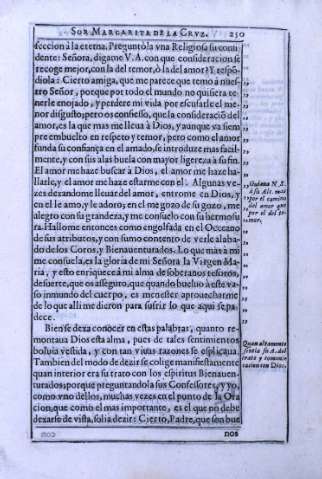 SOR MARGARITA DE LA CRVZ. 250
feccion à la eterna. Preguntò la vna Religiosa su confi
dente: Señora, digame V. A. con que consideracion se
recoge mejor, con la del temor, ò la del amor? Y respõ-
diola: Cierto amiga, que me parece que temo à nues-
tro Señor, porque por todo el mundo no quisiera te-
nerle enojado, y perdere mi vida por escusarle el me-
nor disgusto; pero os confiesso, que la consideraciõ del
amor, es la que mas me lleua à Dios, y aunque va siem
pre embuelto en respeto y temor, pero como el amor
funda su confiança en el amado, se introduze mas facil-
mente, y con sus alas buela con mayor ligereza à su fin.
El amor me haze buscar à Dios, el amor me haze ha-
llarle, y el amor me haze estarme con el. Algunas ve-
zes dexandome lleuar del amor, entrome en Dios, y
en el le amo, y le adoro; en el me gozo de su gozo, me
alegro con su grandeza, y me consuelo con su hermosu
ra. Hallome entonces como engolfada en el Occeano
de sus atributos, y con sumo contento de verle alaba-
do de los Coros, y Bienauenturados. Lo que mas à mi
me consuela, es la gloria de mi Señora la Virgen Ma-
ria, y esto enriquece à mi alma de soberanos tesoros,
de suerte, que os asseguro, que quando bueluo à este va-
so inmundo del cuerpo, es menester aprouecharme
de lo que alli me dieron para sufrir lo que aqui se pa-
dece.
Bien se dexa conocer en estas palabras, quanto re-
montaua Dios esta alma, pues de tales sentimientos
boluia vestida, y con tan viuas razones se esplicaua.
Tambien del modo de dezir se colige manifiestamente
quan interior era su trato con los espiritus Bienauen-
turados; porque preguntandola sus Confessores, y yo,
como vno dellos, muchas vezes en el punto de la Ora
cion, que como el mas importante, es el que no debe
dexarse de vista, solia dezir: Cierto, Padre, que son bue
nos
Guiaua N. S.
à su Alt. mas
por el camino
del amor que
por el del te-
mor.
Quan altamente
sentia su A. del
trato y comuni-
cacion con Dios.